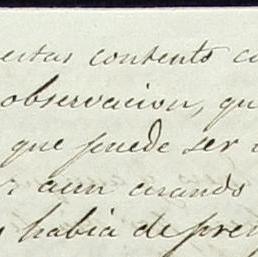 estas contento
observacion, qu
que puede ser
aun cuando
habia de pre